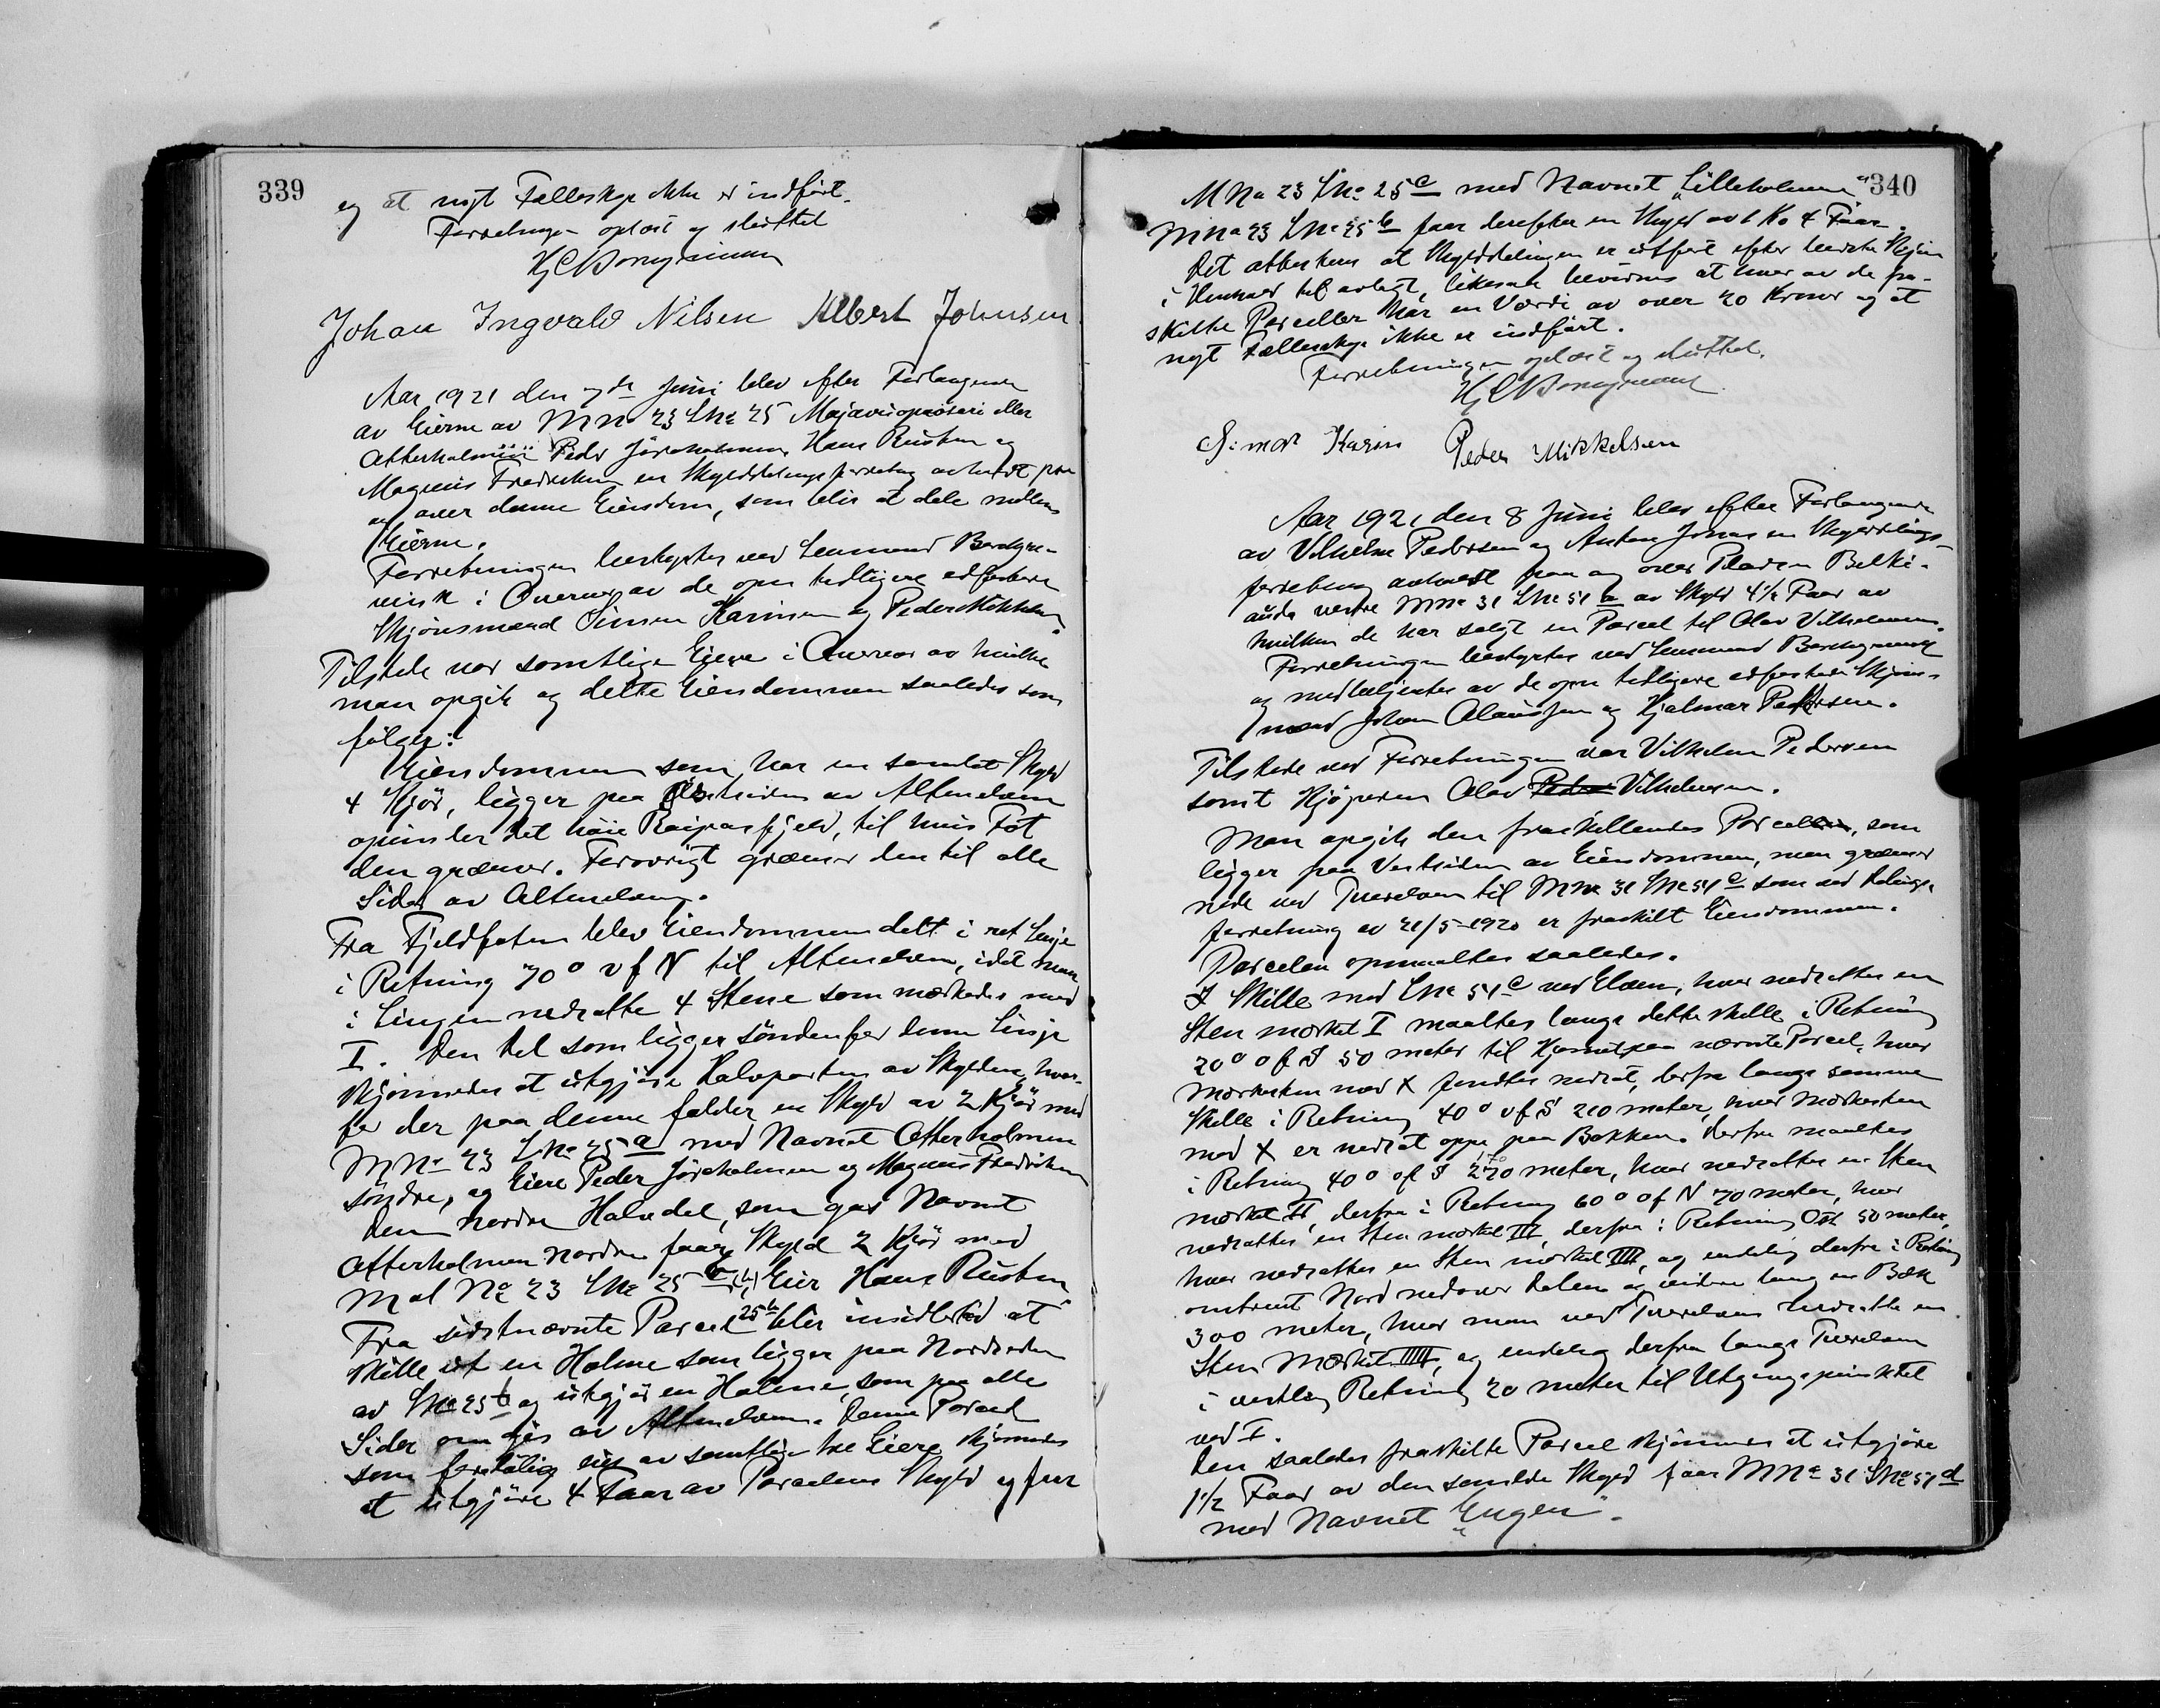 339
og at nyt Fælleskap ikke er indført.
Forretningen oplæst og sluttet
Johan Ingvald Nilsen Albert Johnsen
Aar 1921 den 7de Juni blev efter Forlangende
av Eierne av MNo 23 LNo 25 eller
Peder Hans Rusten og
Magnus Fredriksen en Skylddelingsforretning avholdt paa
og over denne Eiendom, som blir at dele mellem
Eierne.
Forretningen bestyrtes ved Lensmand
i Overvær av de opn tidligere edfæstede
Skjønsmænd Simon Karinsen og Peder Mikkelsen.
Tilstede var samtlige Eiere i Overvær av hvilke
man opgik og delte Eiendommen saaledes som
følger:
Eiendommen som har en samlet Skyld
4 Kjør, ligger paa Østsiden av Altenelven
op under det høie Raipasfjeld, til hvis Fot
den grænser. Forøvrigt grænser den til alle
Sider av Altenelven.
Fra Fjeldfoten blev Eiendommen delt i ret Linje
i Retning 70° v f N til Altenelven, idet man
i Linjen nedsatte 4 Stene som mærkedes med
I. Den Del som ligger søndenfor denne Linje
skjønnedes at utgjøre Halvparten av Skylden, hvor-
for der paa denne falder en Skyld av 2 Kjør med
MNo 23 LNo 25 a med Navnet Otterholmen
søndre, og Eiere Peder Jøraholmen og Magnus Fredriksen
Den nordre Halvdel, som gav Navnet
Otterholmen nordre faar Skyld 2 Kjør med
Mat No 23 LNo 25 b (b) Eier Hans Rusten
Fra sidstnævnte Parcel 25 b blir imidlertid at
skille ut en Holme som ligger paa Nordsiden
av LNo 25 b og utgjør en Holme, som paa alle
Sider omgis av Altenelven. Denne Parcel
som av samtlige tre Eiere skjønnedes
at utgjøre 4 Faar av Parcelens Skyld og faar
340
MNo 23 LNo 25 c med Navnet „Lilleholmen“
MNo 23 LNo 25 b faar derefter en Skyld av 1 Ko 4 Faar.
Det attesteres at Skylddelingen er utført efter bedste Skjøn
i Henhold til avlagt, likesaa bevidnes at hver av de fra-
skilte Parceller har en Værdi av over 20 Kroner og at
nyt Fælleskap ikke er indført.
Forretningen oplæst og sluttet.
Simon Karins Peder Mikkelsen
Aar 1921 den 8 Juni blev efter Forlangende
av Vilhelm Pedersen og Anton Jonas en Skylddelings-
forretning avholdt paa og over Pladsen
vestre MNo 31 LNo 51 a av Skyld 4½ Faar av
hvilken de har solgt en Parcel til Olav Vilhelmsen.
Forretningen bestyrtes ved Lensmand
og medbetjentes av de opn tidligere edfæstede Skjøns-
mænd Johan Olaussen og Hjalmar Pedersen.
Tilstede ved Forretningen var Vilhelm Pedersen
samt Kjøperen Olav Peder Vilhelmsen.
Man opgik den fraskillendes Parcel, som
ligger paa Vestsiden av Eiendommen, man grænser
nede ved Tverelven til MNo 31 LNo 51 c som ved Delings-
forretning av 21/5-1920 er fraskilt Eiendommen.
Parcelen opmaaltes saaledes.
I Skille med LNo 51 c ved Elven, hvor nedsattes en
Sten mærket I maaltes langs dette Skille i Retning
20° o f S 50 meter til Hjørnet paa nævnte Parcel, hvor
Mærkesten med X fandtes nedsat, derfra langs samme
Skille i Retning 40° v f S 210 meter, hvor Mærkesten
med X er nedsat oppe paa Bakken. Derfra maaltes
i Retning 40° o f S 170 meter, hvor nedsattes en Sten
mærket II, derfra i Retning 60° o f N 70 meter, hvor
nedsattes en Sten mærket III, derfra i Retning Øst 50 meter,
hvor nedsattes en Sten mærket IIII, og endelig derfra i Retning
omtrent Nord nedover Dalen og videre langs en Bæk
300 meter, hvor man ved Tverelven nedsatte en
Sten Mærket IIIII, og endelig derfra langs Tverelven
i vestlig Retning 20 meter til Utgangspunktet
ved I.
Den saaledes fraskilte Parcel skjønnes at utgjøre
1½ Faar av den samlede Skyld faar MNo 31 LNo 51 d
med Navnet „Engen“.